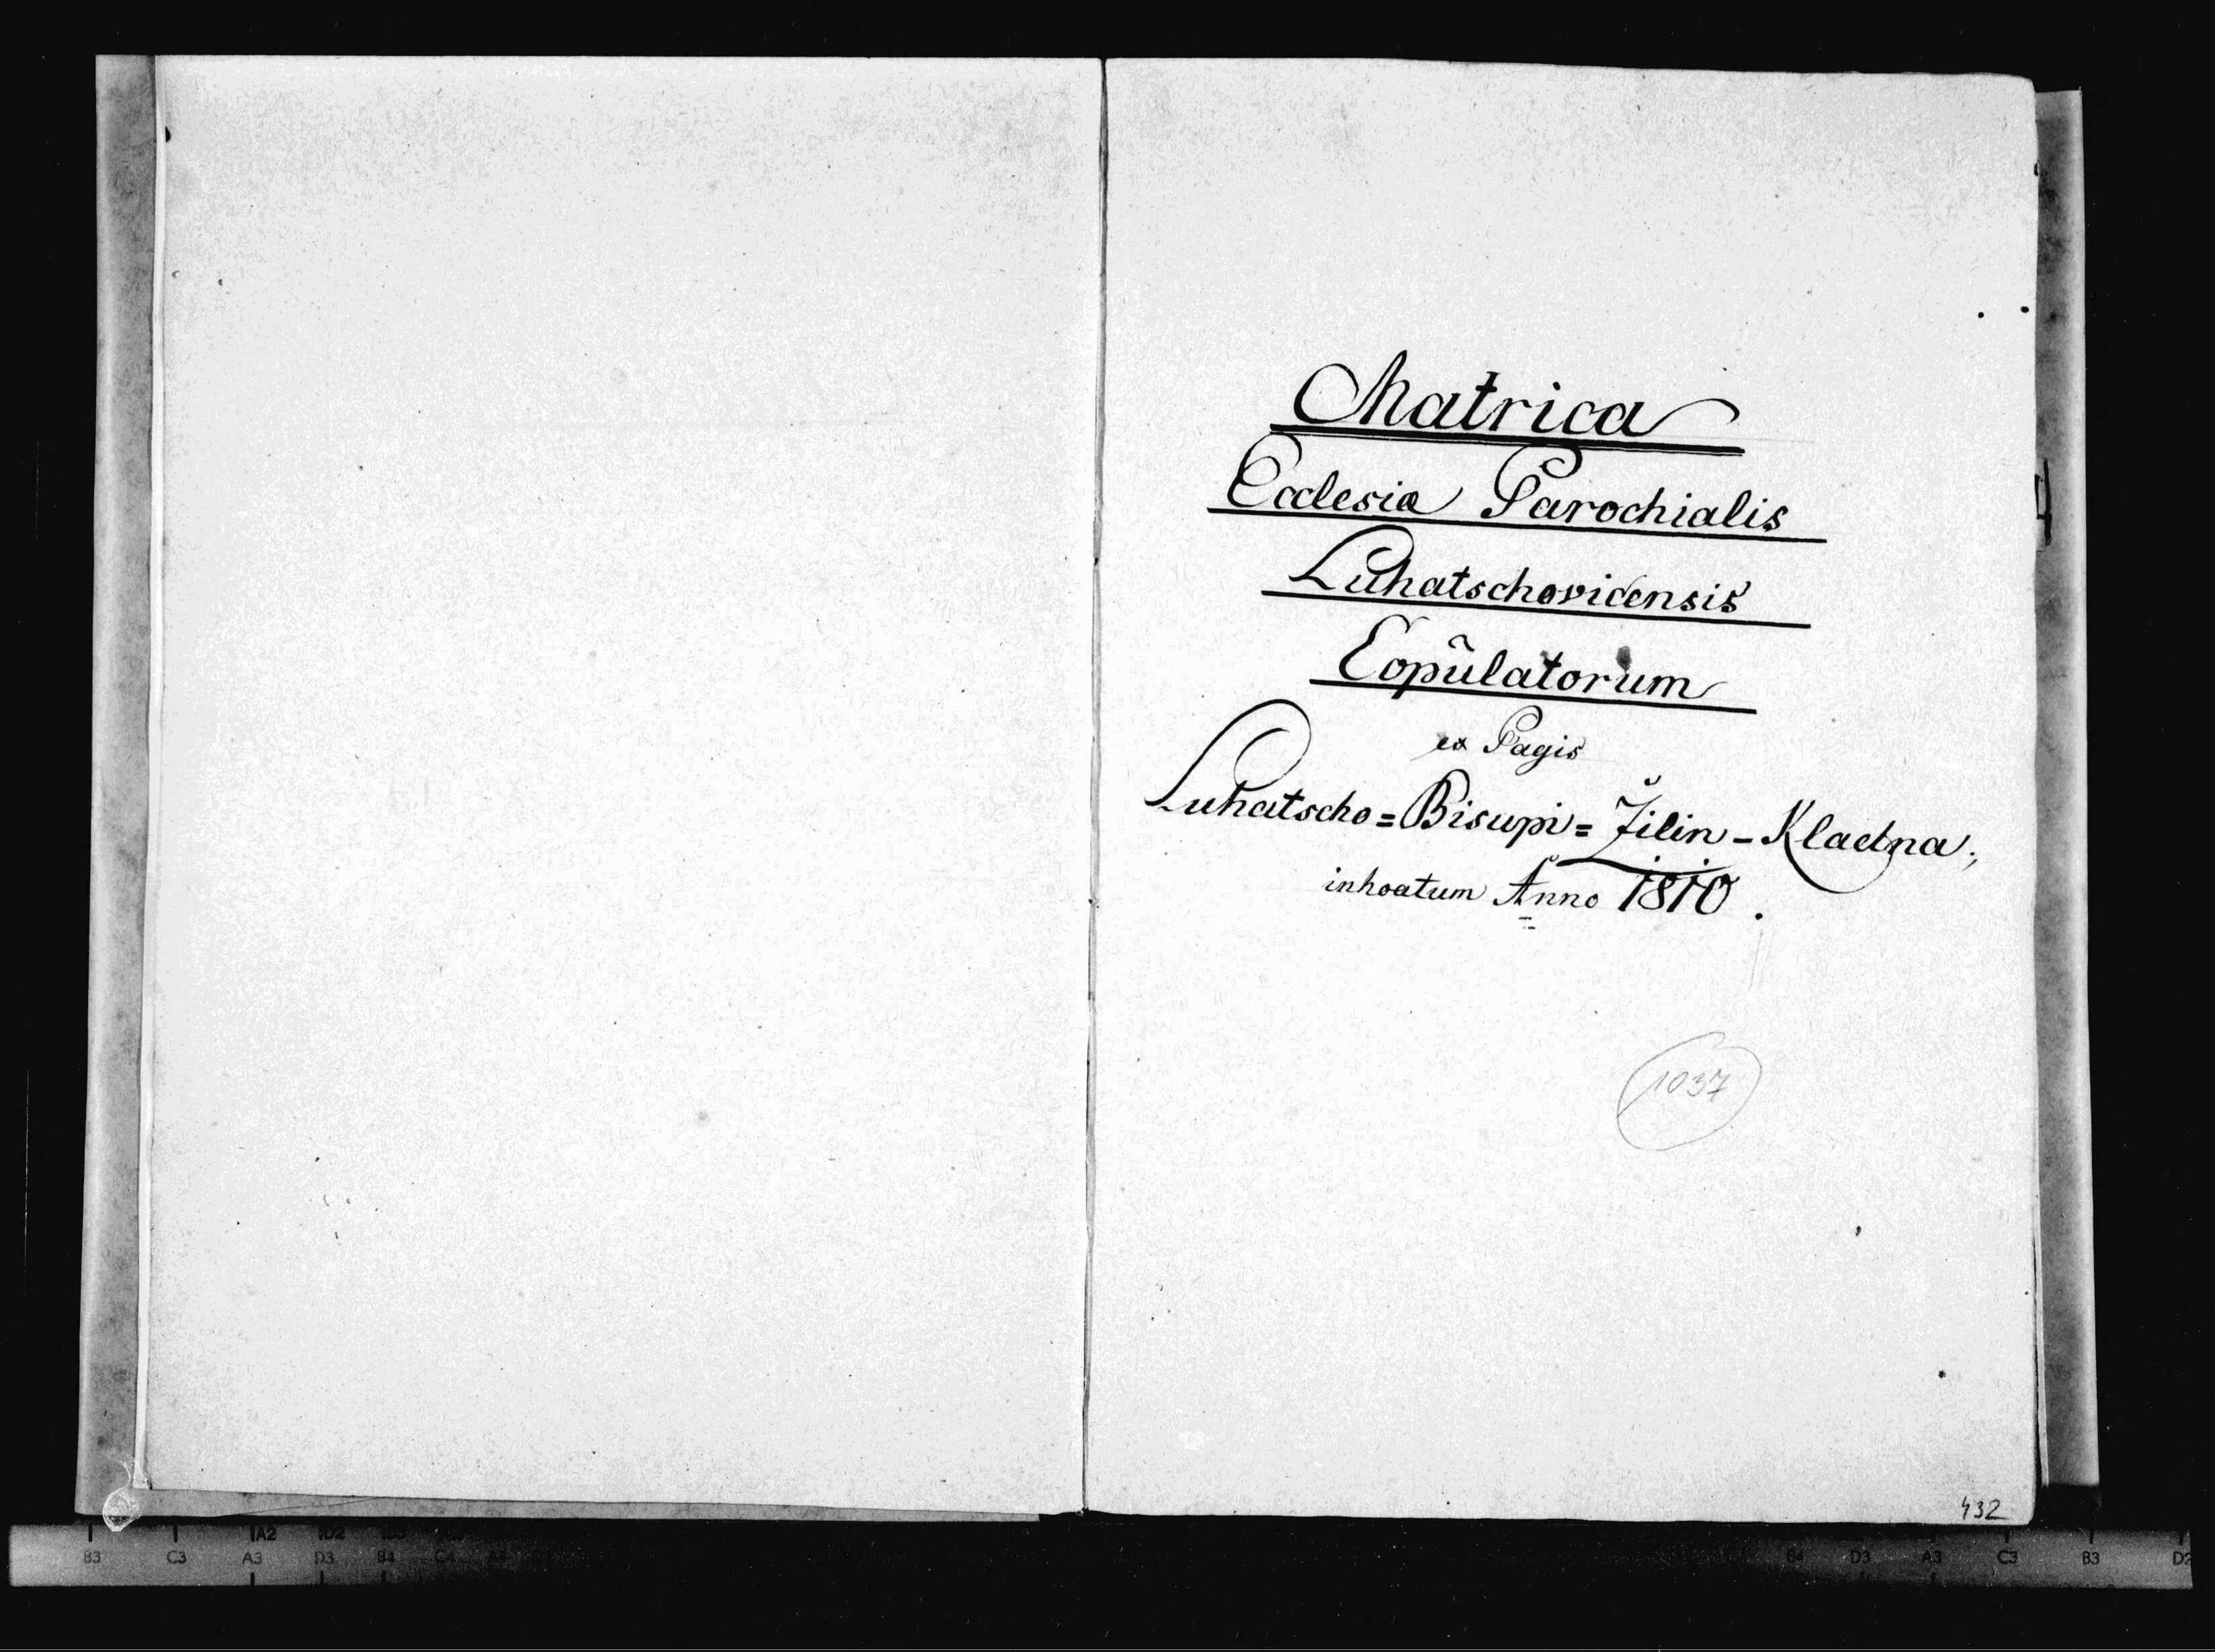 Matrica
Ecclesiæ Parochialis
Luhatschovicensis
Copulatorum
ex Pagis
Luhatscho=Bisupi=Žilin-Kladna;
inhoatum Anno 1810.
1037
432
A2 D2
B3 C3 A3 D3 B4 C4
B4 D3 A3 C3 B3 D2